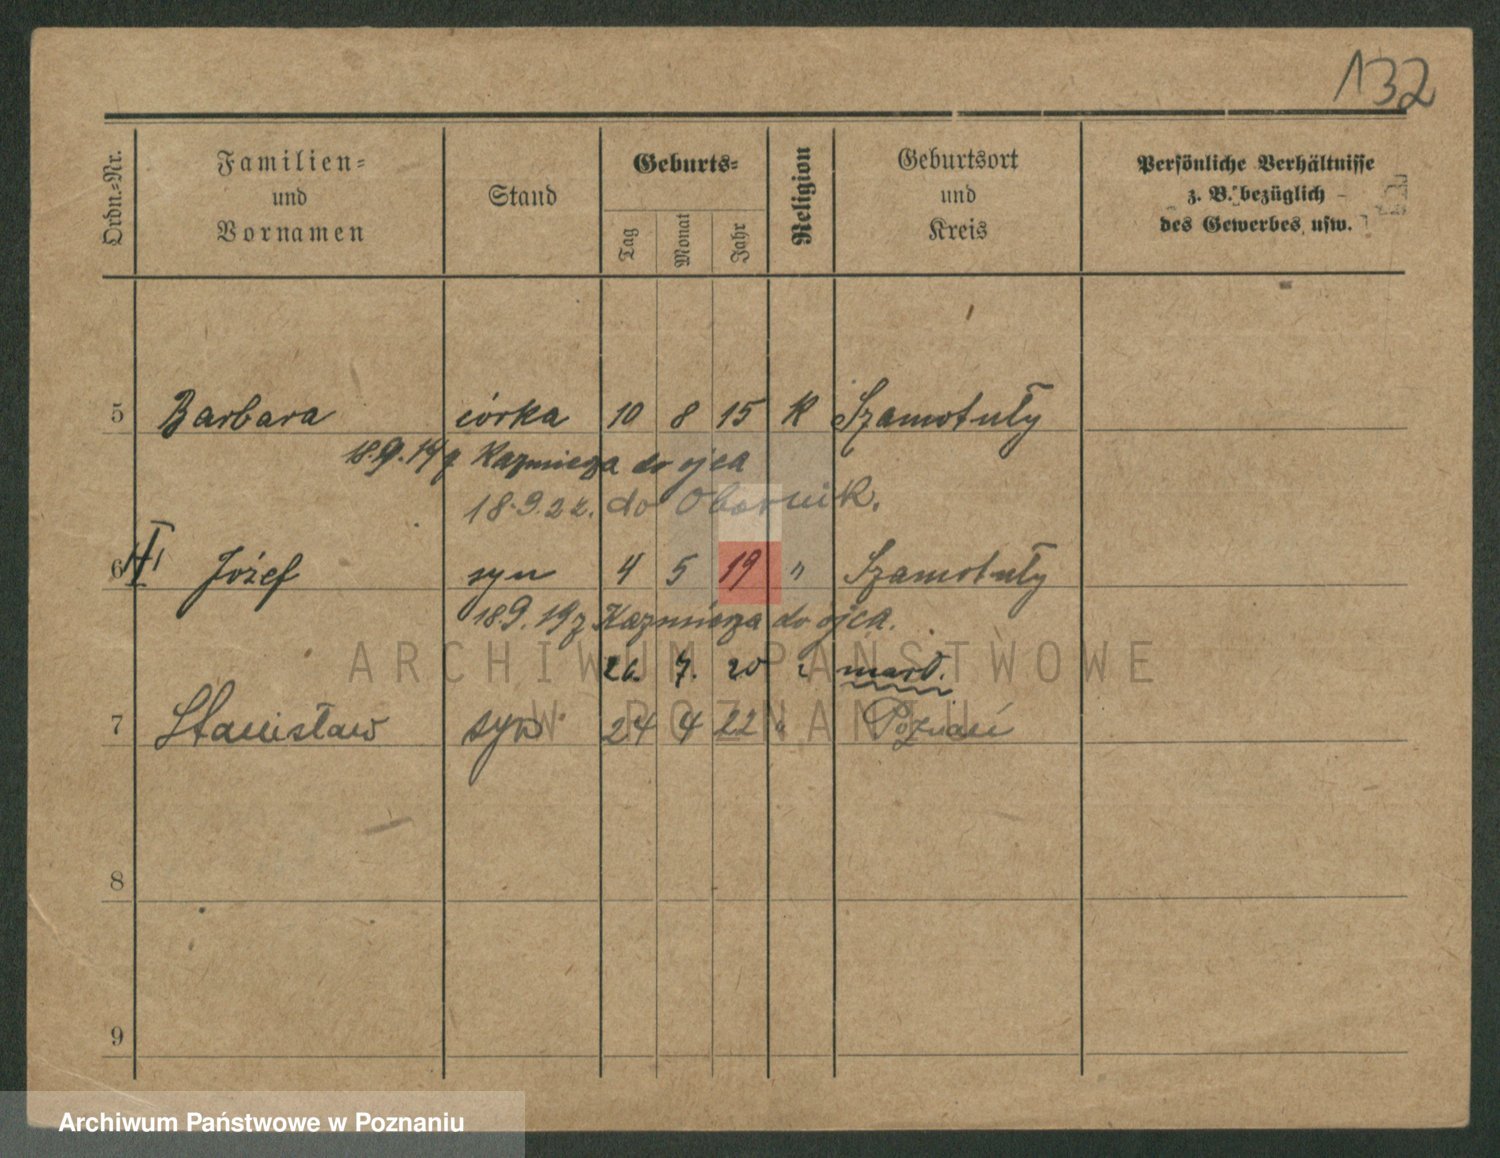 132
Ordn.-Nr.
Familien-
und
Vornamen
Stand
Geburts-
Tag
Monat
Jahr
Religion
Geburtsort
und
Kreis
Persönliche Verhältnisse
z. B. bezüglich
des Gewerbes usw.
5 Barbara córka 10 8 15 K Szamotuły
18.9.19 z Kazmierza do ojca
18.9.22. do Obornik.
6 Józef syn 4 5 19 " Szamotuły
18.9.19 z Kazmierza do ojca.
26. 7. 20
7 Stanisław syn 24 4 22 " Poznań
8
9
ARCHIWUM PAŃSTWOWE
W POZNANIU
Archiwum Państwowe w Poznaniu